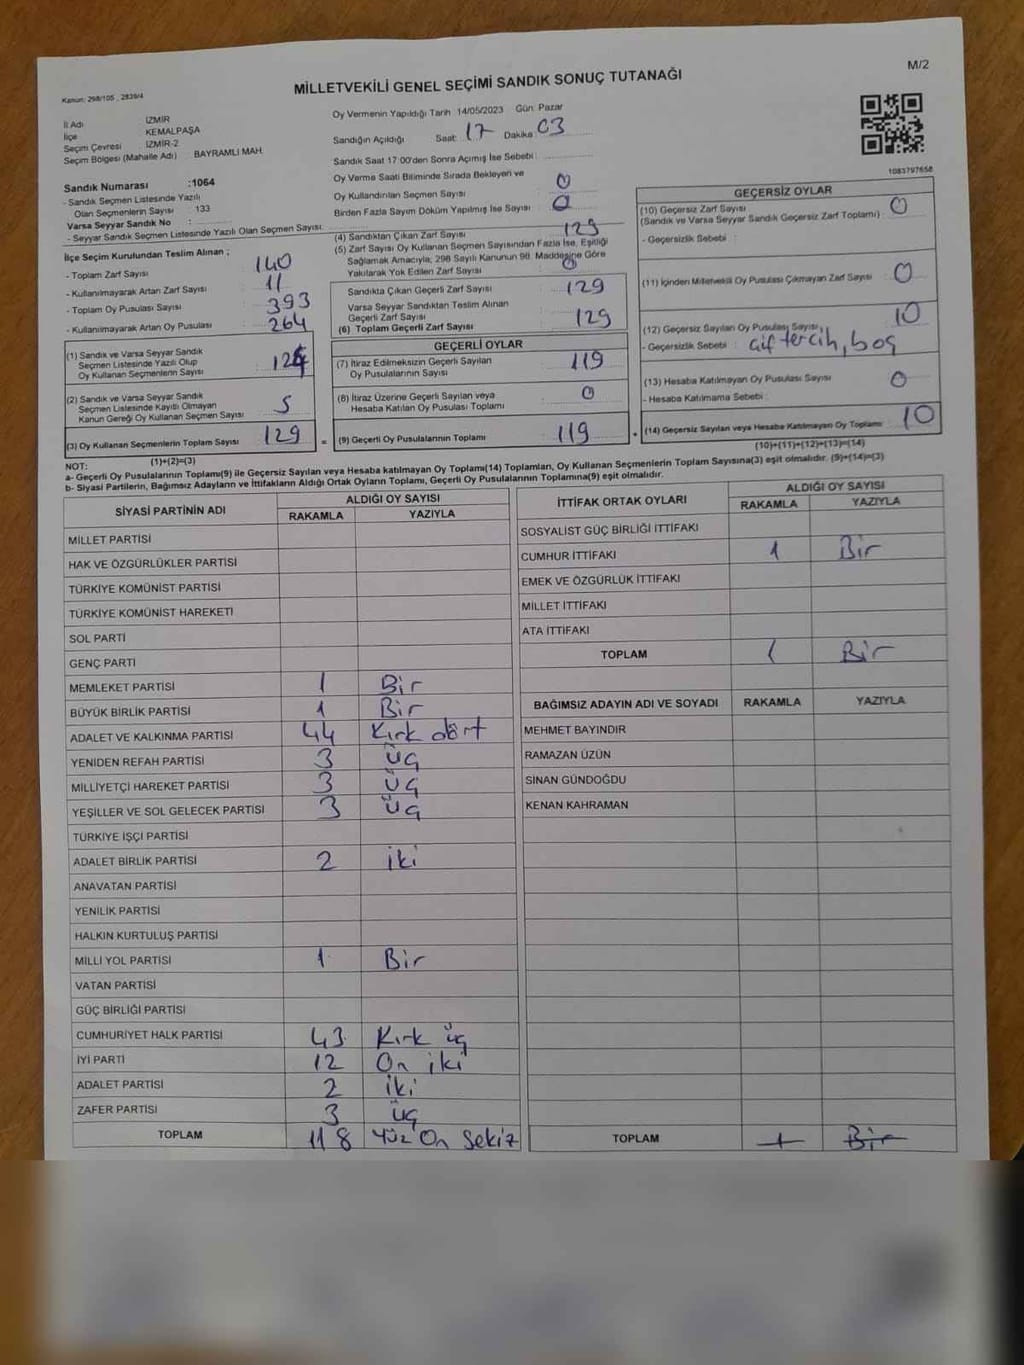 M/2
MİLLETVEKİLİ GENEL SEÇİMİ SANDIK SONUÇ TUTANAĞI
Kanun: 298/105 , 2839/4
İl Adı İZMİR
İlçe KEMALPAŞA
Seçim Çevresi İZMİR-2
Seçim Bölgesi (Mahalle Adı) BAYRAMLI MAH.
Sandık Numarası :1064
- Sandık Seçmen Listesinde Yazılı
Olan Seçmenlerin Sayısı : 133
Varsa Seyyar Sandık No :
- Seyyar Sandık Seçmen Listesinde Yazılı Olan Seçmen Sayısı:
Oy Vermenin Yapıldığı Tarih 14/05/2023 Gün: Pazar
Sandığın Açıldığı Saat: 17 Dakika 03
Sandık Saat 17:00'den Sonra Açımış İse Sebebi :
Oy Verme Saati Bitiminde Sırada Bekleyen ve
Oy Kullandırılan Seçmen Sayısı 0
Birden Fazla Sayım Döküm Yapılmış İse Sayısı 0
1083797658
İlçe Seçim Kurulundan Teslim Alınan ;
- Toplam Zarf Sayısı 140
- Kullanılmayarak Artan Zarf Sayısı 11
- Toplam Oy Pusulası Sayısı 393
- Kullanılmayarak Artan Oy Pusulası 264
(1) Sandık ve Varsa Seyyar Sandık
Seçmen Listesinde Yazılı Olup
Oy Kullanan Seçmenlerin Sayısı 124
(2) Sandık ve Varsa Seyyar Sandık
Seçmen Listesinde Kayıtlı Olmayan
Kanun Gereği Oy Kullanan Seçmen Sayısı 5
(3) Oy Kullanan Seçmenlerin Toplam Sayısı 129
(1)+(2)=(3)
(4) Sandıktan Çıkan Zarf Sayısı 129
(5) Zarf Sayısı Oy Kullanan Seçmen Sayısından Fazla İse, Eşitliği
Sağlamak Amacıyla; 298 Sayılı Kanunun 98. Maddesine Göre
Yakılarak Yok Edilen Zarf Sayısı 0
Sandıkta Çıkan Geçerli Zarf Sayısı 129
Varsa Seyyar Sandıktan Teslim Alınan
Geçerli Zarf Sayısı
(6) Toplam Geçerli Zarf Sayısı 129
GEÇERLİ OYLAR
(7) İtiraz Edilmeksizin Geçerli Sayılan
Oy Pusulalarının Sayısı 119
(8) İtiraz Üzerine Geçerli Sayılan veya
Hesaba Katılan Oy Pusulası Toplamı 0
= (9) Geçerli Oy Pusulalarının Toplamı 119
GEÇERSİZ OYLAR
(10) Geçersiz Zarf Sayısı 0
(Sandık ve Varsa Seyyar Sandık Geçersiz Zarf Toplamı) :
- Geçersizlik Sebebi :
(11) İçinden Milletvekili Oy Pusulası Çıkmayan Zarf Sayısı 0
(12) Geçersiz Sayılan Oy Pusulası Sayısı, 10
- Geçersizlik Sebebi : Çif tercih, boş
(13) Hesaba Katılmayan Oy Pusulası Sayısı 0
- Hesaba Katılmama Sebebi :
+ (14) Geçersiz Sayılan veya Hesaba Katılmayan Oy Toplamı 10
(10)+(11)+(12)+(13)=(14)
NOT:
a- Geçerli Oy Pusulalarının Toplamı(9) ile Geçersiz Sayılan veya Hesaba katılmayan Oy Toplamı(14) Toplamları, Oy Kullanan Seçmenlerin Toplam Sayısına(3) eşit olmalıdır. (9)+(14)=(3)
b- Siyasi Partilerin, Bağımsız Adayların ve İttifakların Aldığı Ortak Oyların Toplamı, Geçerli Oy Pusulalarının Toplamına(9) eşit olmalıdır.
SİYASİ PARTİNİN ADI ALDIĞI OY SAYISI
RAKAMLA YAZIYLA
MİLLET PARTİSİ
HAK VE ÖZGÜRLÜKLER PARTİSİ
TÜRKİYE KOMÜNİST PARTİSİ
TÜRKİYE KOMÜNİST HAREKETİ
SOL PARTİ
GENÇ PARTİ
MEMLEKET PARTİSİ 1 Bir
BÜYÜK BİRLİK PARTİSİ 1 Bir
ADALET VE KALKINMA PARTİSİ 44 Kırk dört
YENİDEN REFAH PARTİSİ 3 Üç
MİLLİYETÇİ HAREKET PARTİSİ 3 Üç
YEŞİLLER VE SOL GELECEK PARTİSİ 3 Üç
TÜRKİYE İŞÇİ PARTİSİ
ADALET BİRLİK PARTİSİ 2 iki
ANAVATAN PARTİSİ
YENİLİK PARTİSİ
HALKIN KURTULUŞ PARTİSİ
MİLLİ YOL PARTİSİ 1 Bir
VATAN PARTİSİ
GÜÇ BİRLİĞİ PARTİSİ
CUMHURİYET HALK PARTİSİ 43 Kırk üç
İYİ PARTİ 12 On iki
ADALET PARTİSİ 2 iki
ZAFER PARTİSİ 3 üç
TOPLAM 118 Yüz On Sekiz
İTTİFAK ORTAK OYLARI ALDIĞI OY SAYISI
RAKAMLA YAZIYLA
SOSYALİST GÜÇ BİRLİĞİ İTTİFAKI
CUMHUR İTTİFAKI 1 Bir
EMEK VE ÖZGÜRLÜK İTTİFAKI
MİLLET İTTİFAKI
ATA İTTİFAKI
TOPLAM 1 Bir
BAĞIMSIZ ADAYIN ADI VE SOYADI RAKAMLA YAZIYLA
MEHMET BAYINDIR
RAMAZAN ÜZÜN
SİNAN GÜNDOĞDU
KENAN KAHRAMAN
TOPLAM 1 Bir